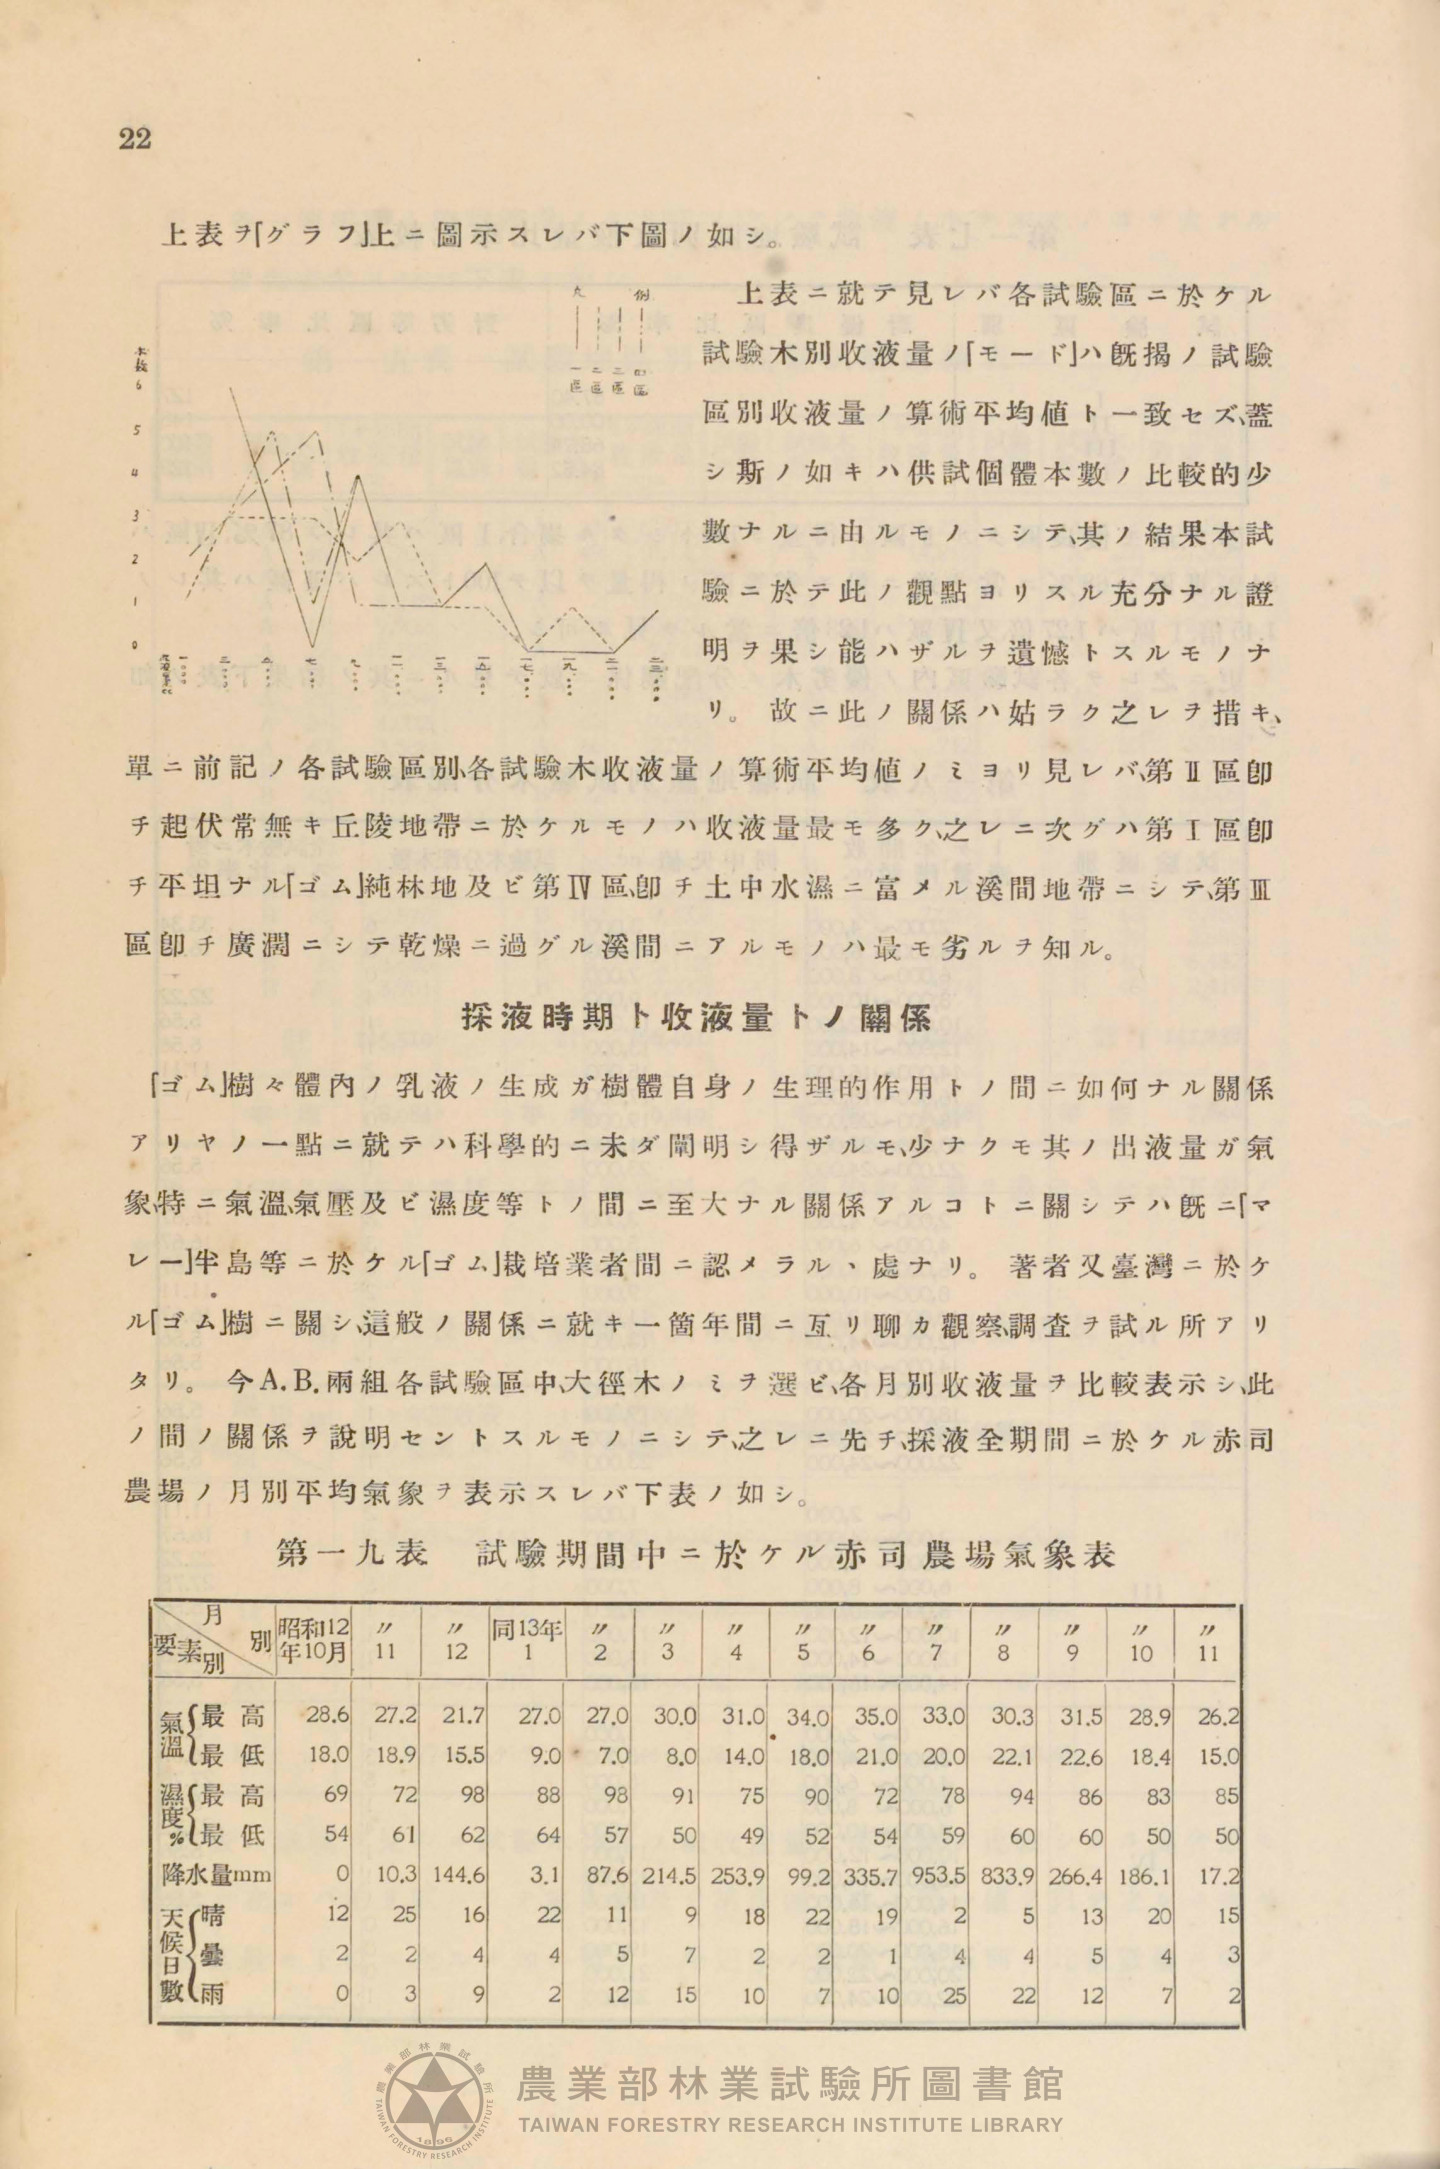 22
上表ヲ「グラフ」上ニ圖示スレバ下圖ノ如シ。
凡例
一區
二區
三區
四區
本數
6
5
4
3
2
1
0
上表ニ就テ見レバ各試驗區ニ於ケル
試驗木別收液量ノ「モード」ハ旣揭ノ試驗
區別收液量ノ算術平均値ト一致セズ、蓋
シ斯ノ如キハ供試個體本數ノ比較的少
數ナルニ由ルモノニシテ、其ノ結果本試
驗ニ於テ此ノ觀點ヨリスル充分ナル證
明ヲ果シ能ハザルヲ遺憾トスルモノナ
リ。 故ニ此ノ關係ハ姑ラク之レヲ措キ、
單ニ前記ノ各試驗區別、各試驗木收液量ノ算術平均値ノミヨリ見レバ、第Ⅱ區卽
チ起伏常無キ丘陵地帶ニ於ケルモノハ收液量最モ多ク、之レニ次グハ第Ⅰ區卽
チ平坦ナル「ゴム」純林地及ビ第Ⅳ區、卽チ土中水濕ニ富メル溪間地帶ニシテ、第Ⅲ
區卽チ廣濶ニシテ乾燥ニ過グル溪間ニアルモノハ最モ劣ルヲ知ル。
採液時期ト收液量トノ關係
「ゴム」樹々體內ノ乳液ノ生成ガ樹體自身ノ生理的作用トノ間ニ如何ナル關係
アリヤノ一點ニ就テハ科學的ニ未ダ闡明シ得ザルモ、少ナクモ其ノ出液量ガ氣
象、特ニ氣溫、氣壓及ビ濕度等トノ間ニ至大ナル關係アルコトニ關シテハ旣ニ「マ
レー」半島等ニ於ケル「ゴム」栽培業者間ニ認メラル丶處ナリ。 著者又臺灣ニ於ケ
ル「ゴム」樹ニ關シ、這般ノ關係ニ就キ一箇年間ニ亙リ聊カ觀察、調査ヲ試ル所アリ
タリ。 今A.B.兩組各試驗區中、大徑木ノミヲ選ビ、各月別收液量ヲ比較表示シ、此
ノ間ノ關係ヲ說明セントスルモノニシテ、之レニ先チ、採液全期間ニ於ケル赤司
農場ノ月別平均氣象ヲ表示スレバ下表ノ如シ。
第一九表 試驗期間中ニ於ケル赤司農場氣象表
月別 要素別 昭和12年10月 〃11 〃12 同13年1 〃2 〃3 〃4 〃5 〃6 〃7 〃8 〃9 〃10 〃11
氣溫 最高 28.6 27.2 21.7 27.0 27.0 30.0 31.0 34.0 35.0 33.0 30.3 31.5 28.9 26.2
最低 18.0 18.9 15.5 9.0 7.0 8.0 14.0 18.0 21.0 20.0 22.1 22.6 18.4 15.0
濕度% 最高 69 72 98 88 98 91 75 90 72 78 94 86 83 85
最低 54 61 62 64 57 50 49 52 54 59 60 60 50 50
降水量mm 0 10.3 144.6 3.1 87.6 214.5 253.9 99.2 335.7 953.5 833.9 266.4 186.1 17.2
天候日數 晴 12 25 16 22 11 9 18 22 19 2 5 13 20 15
曇 2 2 4 4 5 7 2 2 1 4 4 5 4 3
雨 0 3 9 2 12 15 10 7 10 25 22 12 7 2
農業部林業試驗所
TAIWAN FORESTRY RESEARCH INSTITUTE
1896
農業部林業試驗所圖書館
TAIWAN FORESTRY RESEARCH INSTITUTE LIBRARY